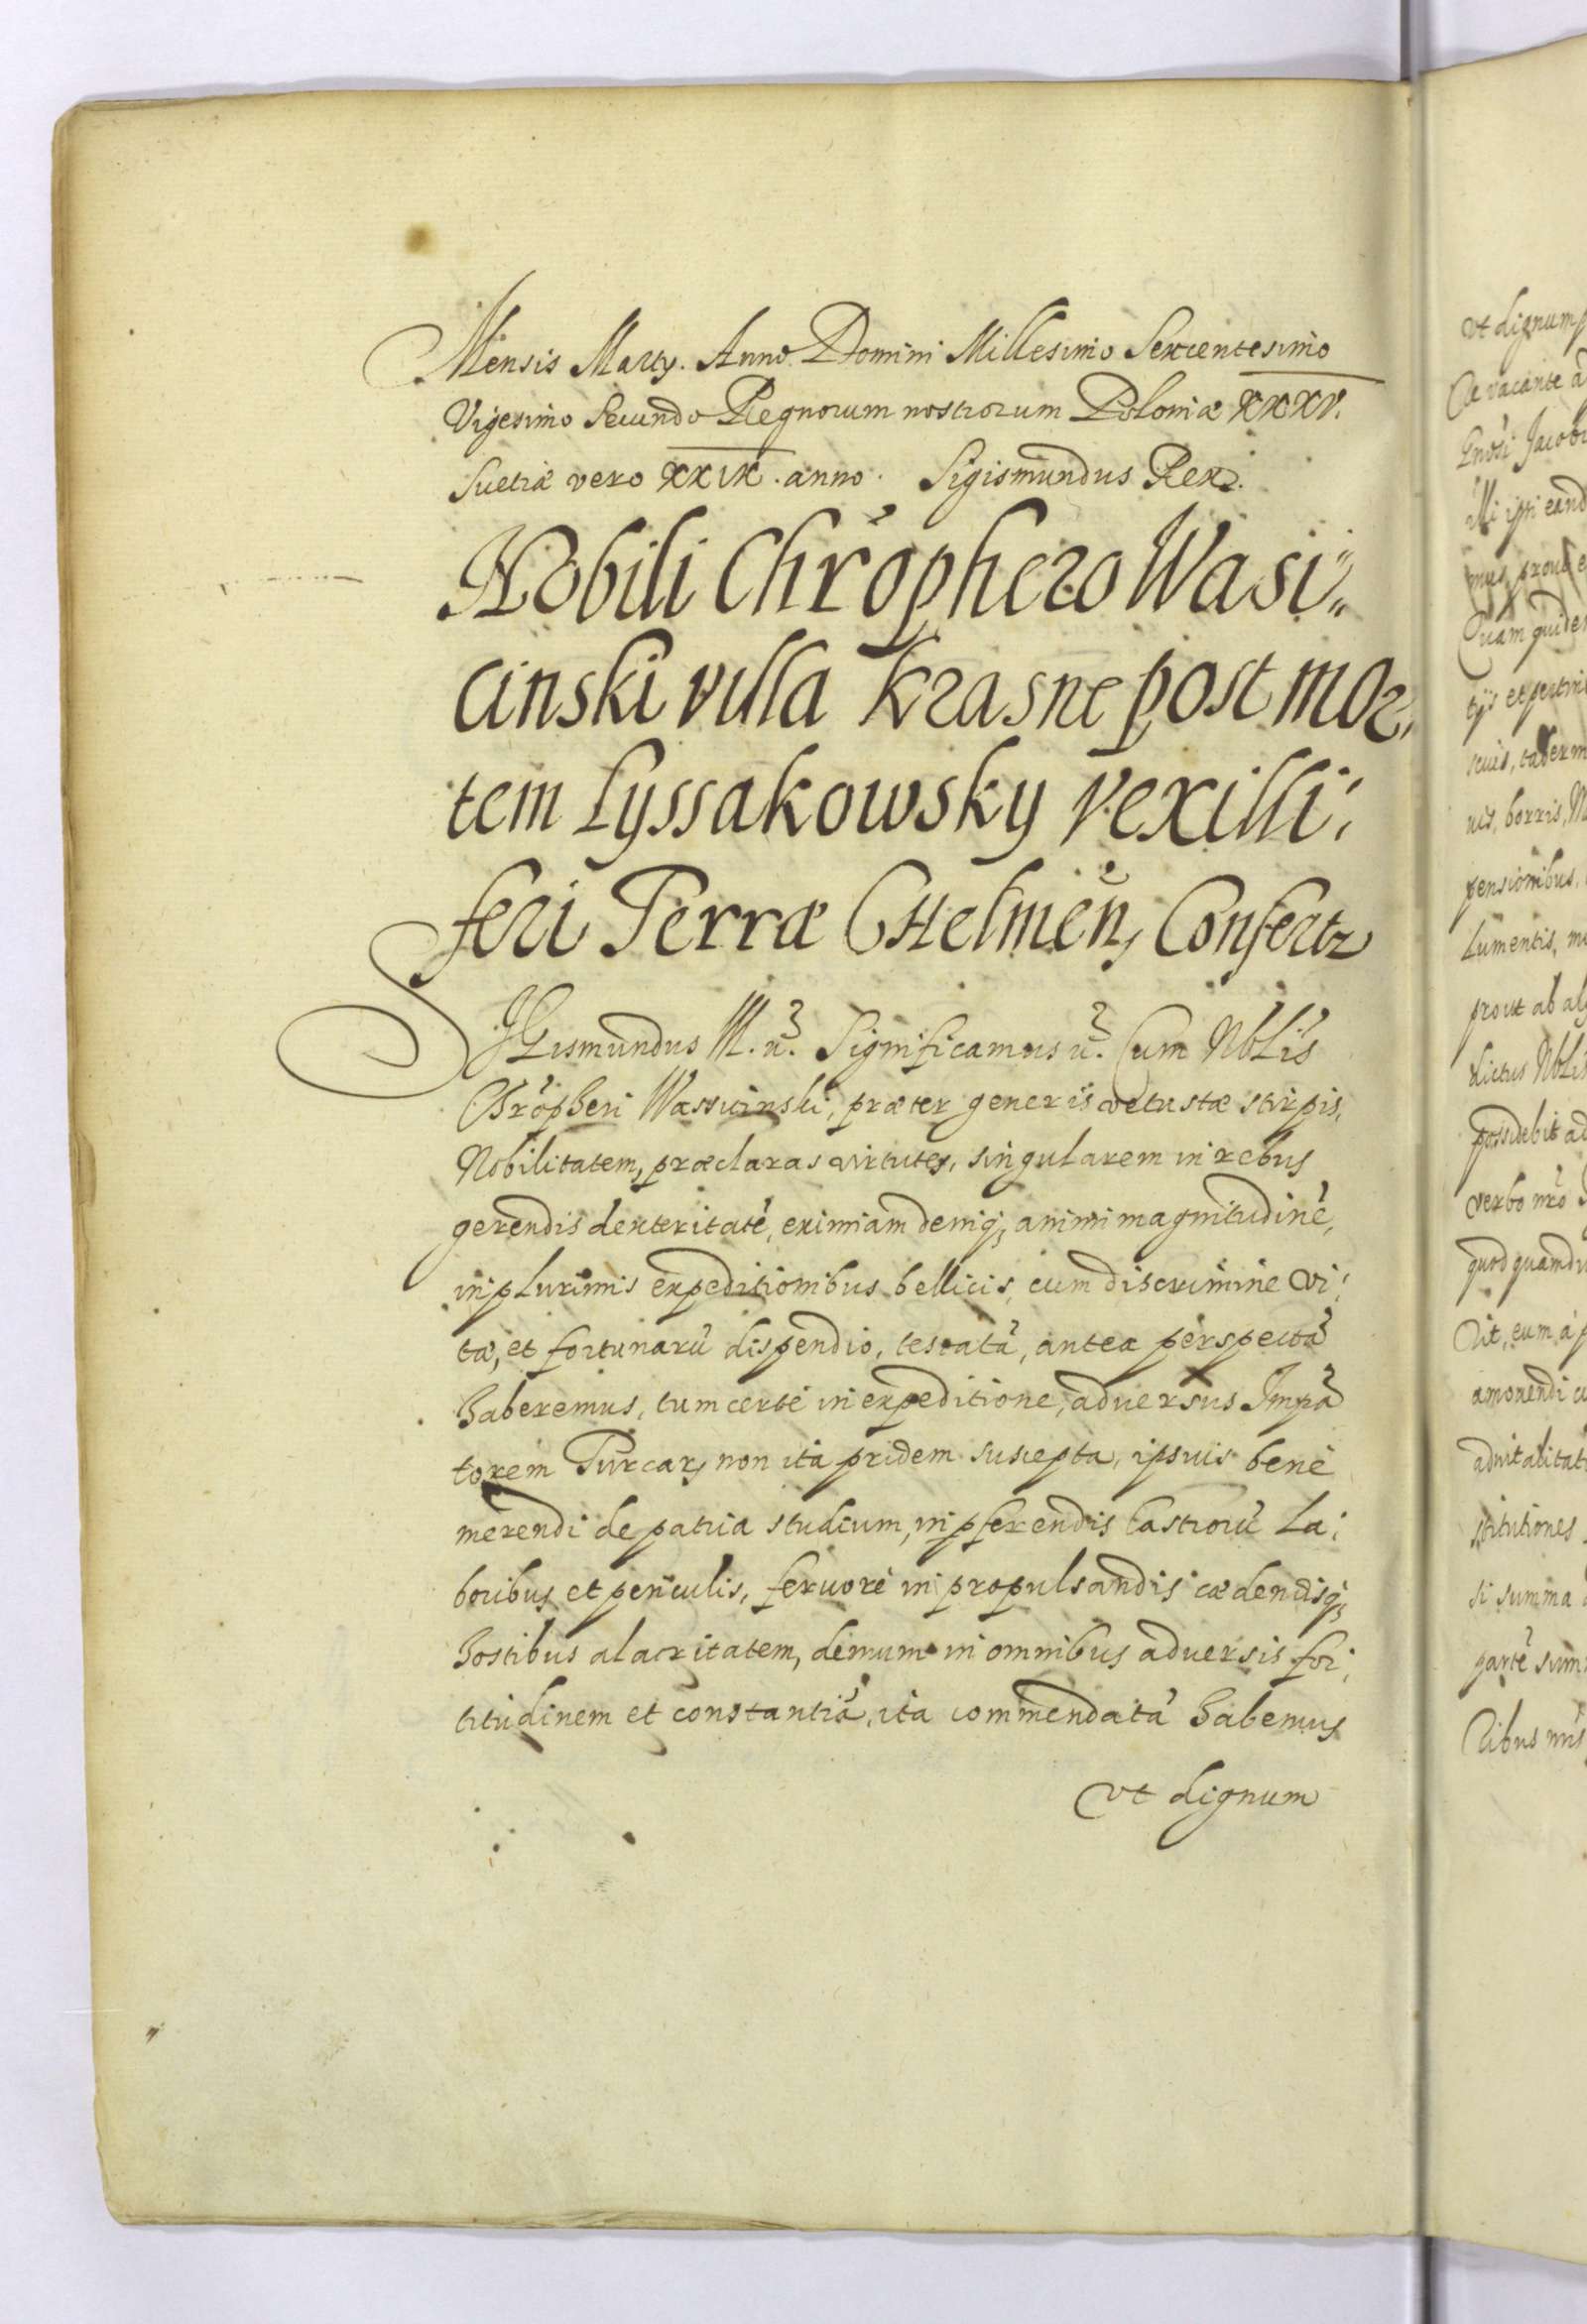 Mensis Martij. Anno Domini Millesimo Sexcentesimo
Vigesimo Secundo Regnorum nostrorum Poloniæ XXXV.
Suetiæ vero XXIX. anno. Sigismundus Rex.
Nobili Chrõphero Wasi„
cinski villa Krasne post mor„
tem Lyssakowsky vexilli„
feri Terræ CHelmeñ, Confertr
SIGismundus III. &c. Significamus &c. Cum Nbłis
Chrõpheri Wassicinski, præter generis vetustæ stirpis,
Nobilitatem, præclaras virtutes, singularem in rebus
gerendis dexteritatẽ, eximiam deniq; animi magnitudinẽ,
in plurimis expeditionibus bellicis, cum discrimine vi„
tæ, et fortunarũ dispendio, testatã, antea perspectã
haberemus, tum certè in expeditione, aduersus Impã
torem Turcar, non ita pridem suscepta, ipsius bene
merendi de patria studium, in pferendis Castrorũ La„
boribus et periculis, feruorẽ in propulsandis cædendisq;
hostibus alacritatem, demum in omnibus aduersis for„
titudinem et constantiã, ita commendatã habemus
vt dignum
vt dignum
vacante
Jacob
illi ipsi eand
mus, prout
Quam quide
tijs et pertin
nis, borris,
pensionibus,
Lumentis,
prout ab
dictus Nbłis
possidebit
verbo nr̃o
quod quamdi
amonendi
aduitalitat
stitutiones
si summa
partẽ